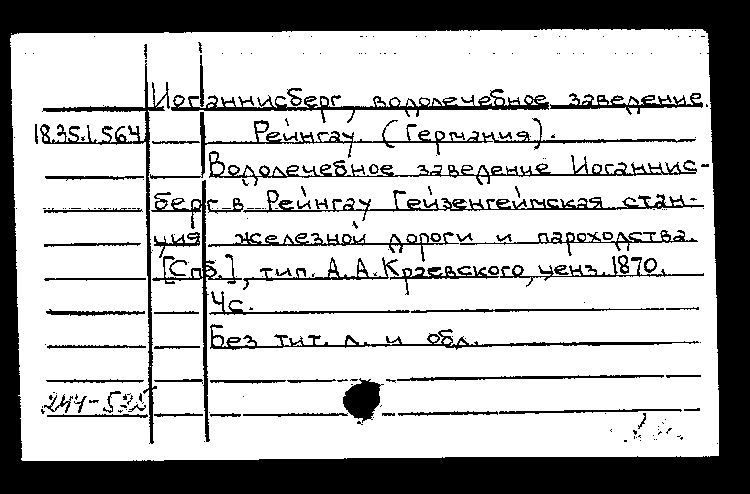 Иоганнисберг, водолечебное заведение.
18.35.1.564 Рейнгау (Германия).
Водолечебное заведение Иоганнис-
берг в Рейнгау Гейзенгеймская стан-
ция железной дороги и пароходства.
[Спб.], тип. А.А.Краевского, ценз. 1870.
4с.
Без тит. л. и обл.
244-535